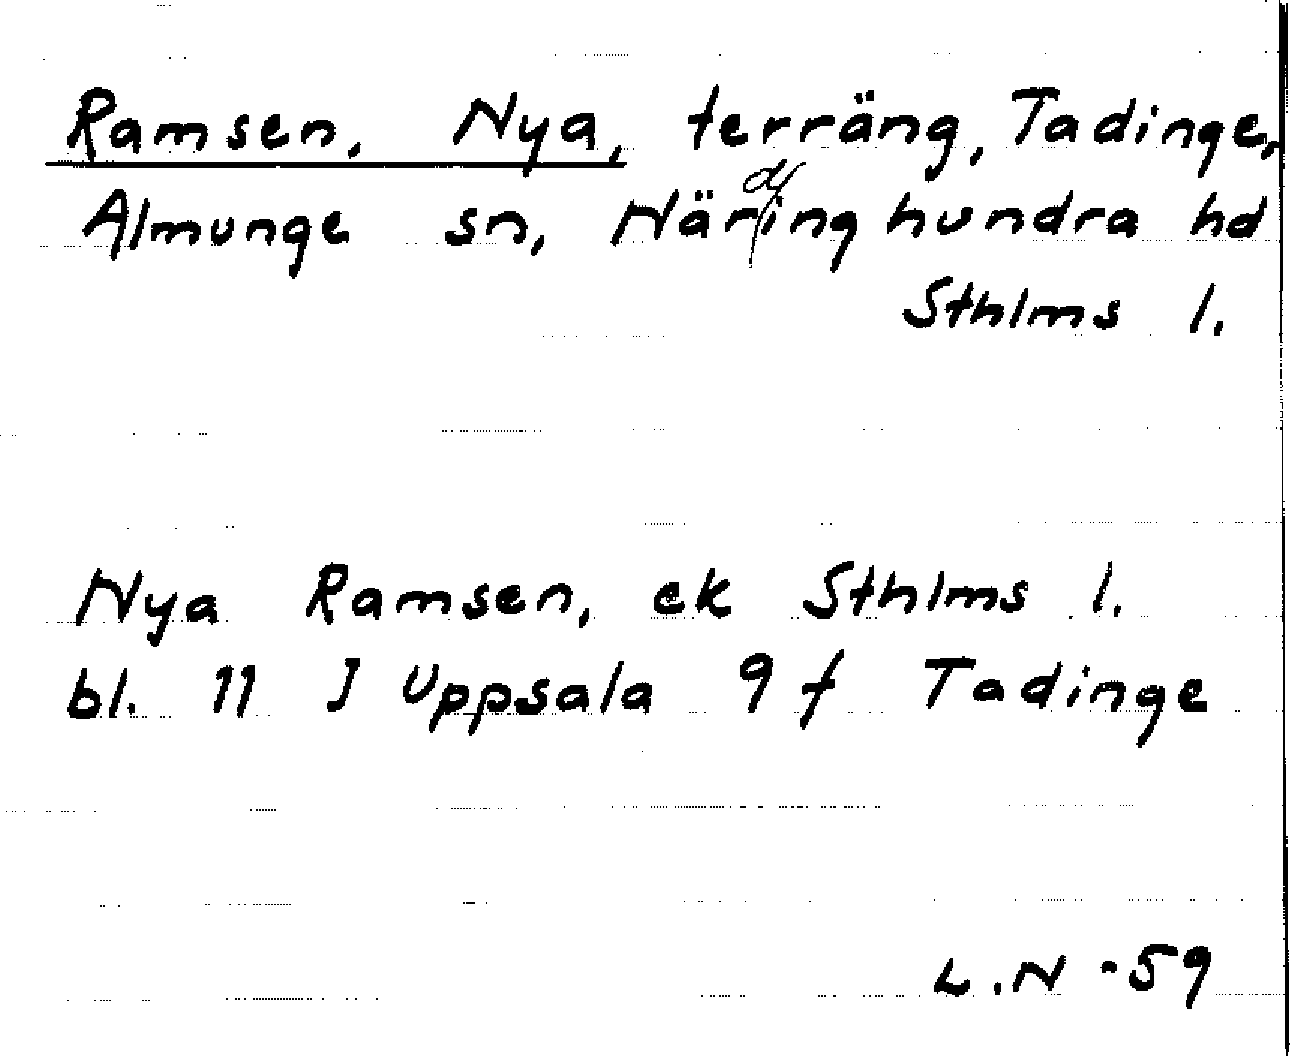 Ramsen, Nya, terräng, Tadinge,
Almunge sn, Närdinghundra hd
Sthlms l.
Nya Ramsen, ek Sthlms l.
bl. 11 J Uppsala 9 f Tadinge
L.N -59